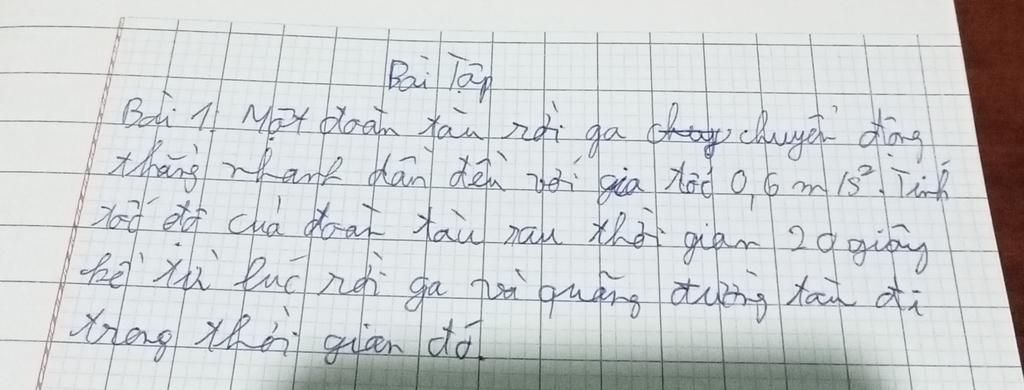 Bài Tập
Bài 1: Một đoàn tàu rời ga chuyển động
thẳng nhanh dần đều với gia tốc 0,6 m/s². Tính
tốc độ của đoàn tàu sau thời gian 20 giây
kể từ lúc rời ga và quãng đường tàu đi
trong thời gian đó.